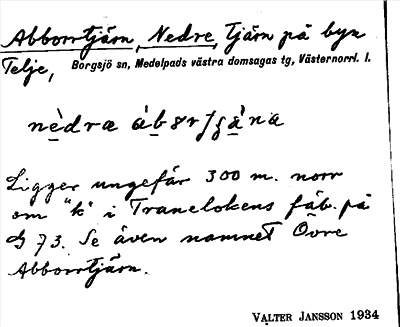 Abborrtjärn, Nedre, Tjärn på byn
Telje, Borgsjö sn, Medelpads västra domsagas tg, Västernorrl. l.
Ligger ungefär 300 m. norr
om "k" i Tranelokens fäb. på
G 73. Se även namnet Övre
Abborrtjärn.
VALTER JANSSON 1934